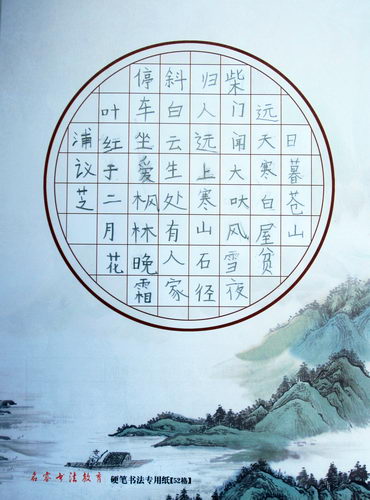 日暮苍山
远天寒白屋贫
柴门闻犬吠风雪夜
归人远上寒山石径
斜白云生处有人家
停车坐爱枫林晚霜
叶红于二月花
浦议芝
名睿书法教育 硬笔书法专用纸【52格】